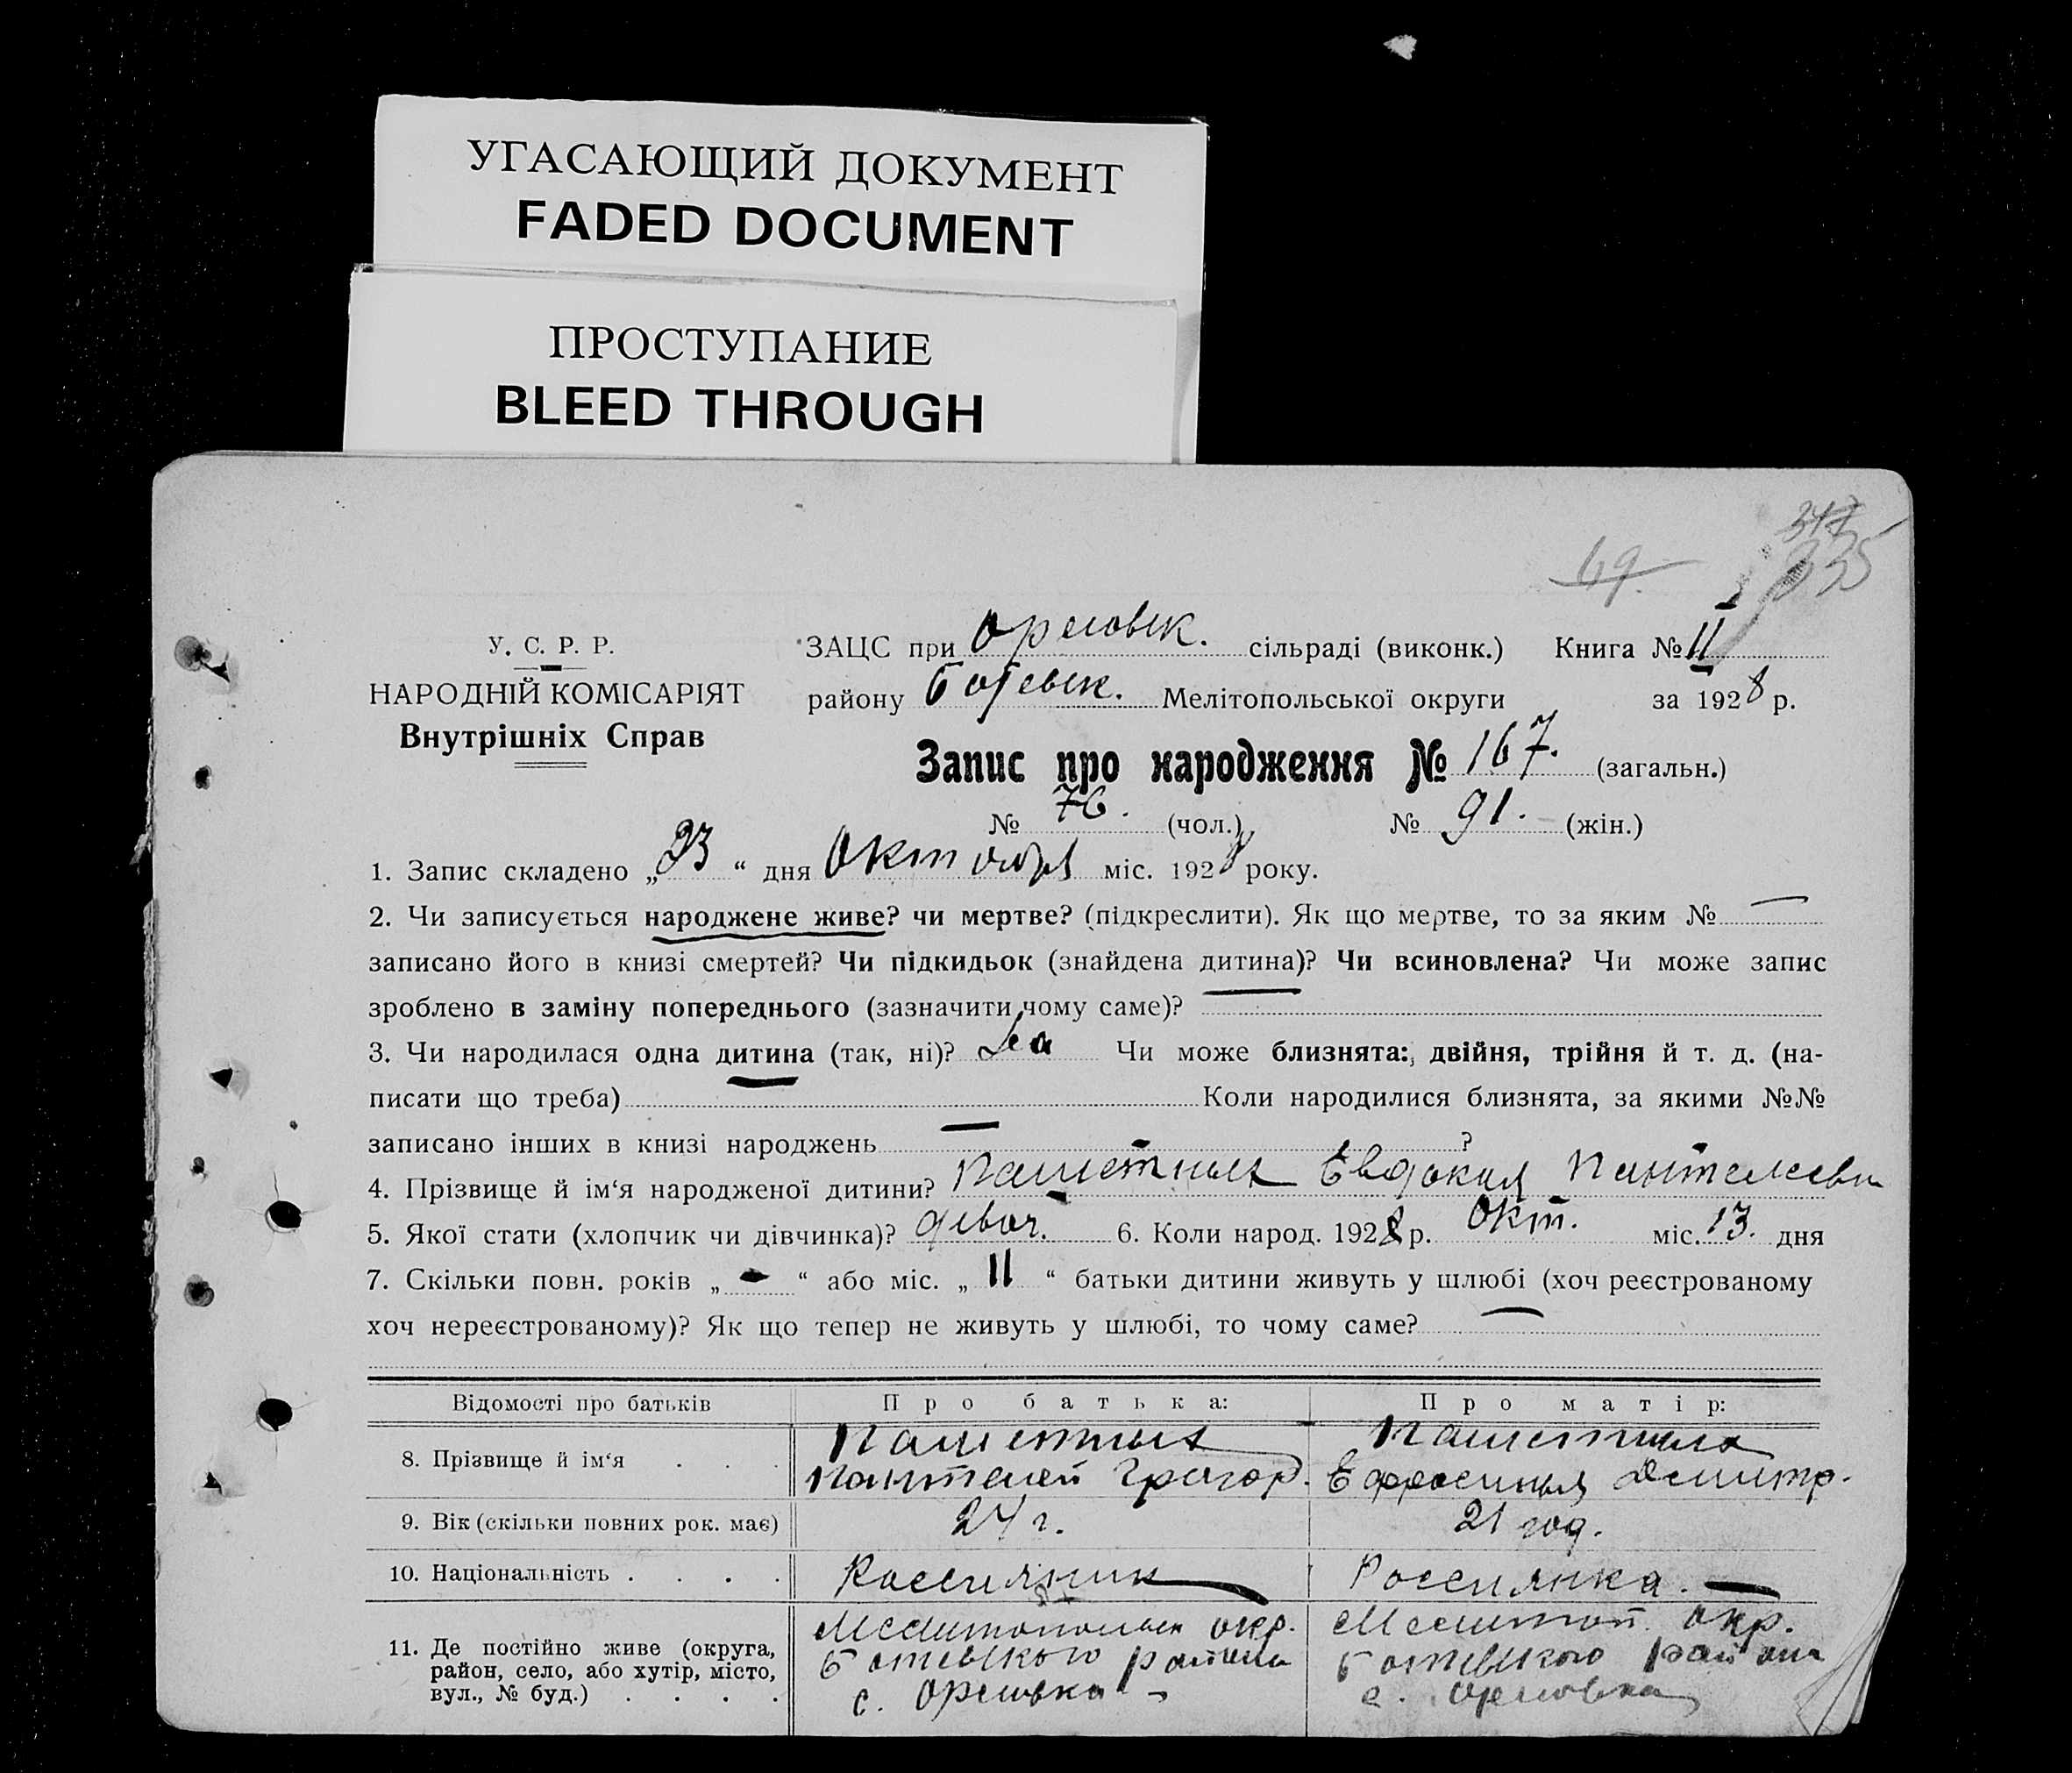 УГАСАЮЩИЙ ДОКУМЕНТ
FADED DOCUMENT
ПРОСТУПАНИЕ
BLEED THROUGH
69.
У. С. Р. Р.
НАРОДНІЙ КОМІСАРІЯТ
Внутрішніх Справ
ЗАЦС при Орловск. сільраді (виконк.) Книга № II
району Ботевск. Мелітопольської округи за 1928 р.
Запис про народження № 167. (загальн.)
№ 76. (чол.) № 91. (жін.)
1. Запис складено „23“ дня Октября міс. 1928 року.
2. Чи записується народжене живе? чи мертве? (підкреслити). Як що мертве, то за яким № —
записано його в книзі смертей? Чи підкидьок (знайдена дитина)? Чи всиновлена? Чи може запис
зроблено в заміну попереднього (зазначити чому саме)? —
3. Чи народилася одна дитина (так, ні)? Да Чи може близнята: двійня, трійня й т. д. (на-
писати що треба) — Коли народилися близнята, за якими №№
записано інших в книзі народжень — ?
4. Прізвище й ім‘я народженої дитини? Евдокия Пантелеевн
5. Якої стати (хлопчик чи дівчинка)? девоч. 6. Коли народ. 1928 р. Окт. міс. 13. дня
7. Скільки повн. років „ - “ або міс. „ 11 “ батьки дитини живуть у шлюбі (хоч реєстрованому
хоч нереєстрованому)? Як що тепер не живуть у шлюбі, то чому саме? —
Відомості про батьків Про батька: Про матір:
8. Прізвище й ім‘я . . .
Пантелей Григор. Ефросиния Дмитр.
9. Вік (скільки повних рок. має) 24 г. 21 год.
10. Національність . . . . Россиянин Россиянка.
11. Де постійно живе (округа, район, село, або хутір, місто, вул., № буд.) . . . .
Мелитопольск окр. Мелитоп. окр.
Ботевского района Ботевского района
с. Орловка с. Орловка